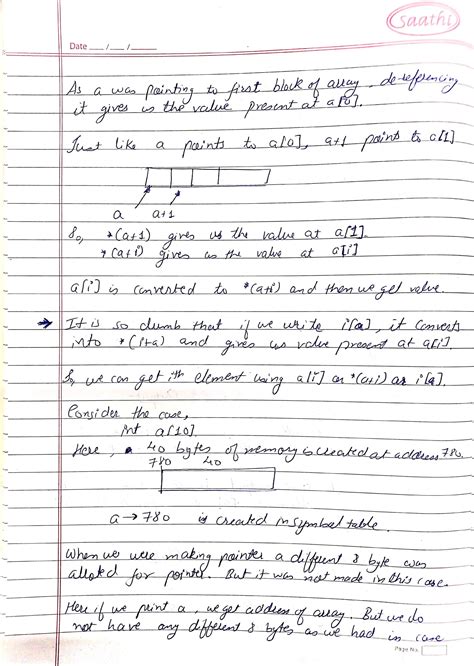 saathi
Date __/__/__
As a was pointing to first block of array, de-referencing
it gives us the value present at a[0].
Just like a points to a[0], a+1 points to a[1]
a a+1
So, *(a+1) gives us the value at a[1].
*(a+i) gives us the value at a[i]
a[i] is converted to *(a+i) and then we get value.
→ It is so dumb that if we write i[a], it converts
into *(i+a) and gives us value present at a[i].
So, we can get ith element using a[i] or *(a+i) or i[a].
Consider the case,
int a[10].
Here, 40 bytes of memory is created at address 780.
780 40
a → 780 is created in symbol table.
When we were making pointer a different 8 byte was
alloted for pointer. But it was not made in this case.
Here if we print a, we get address of array. But we do
not have any different 8 bytes as we had in case
Page No.